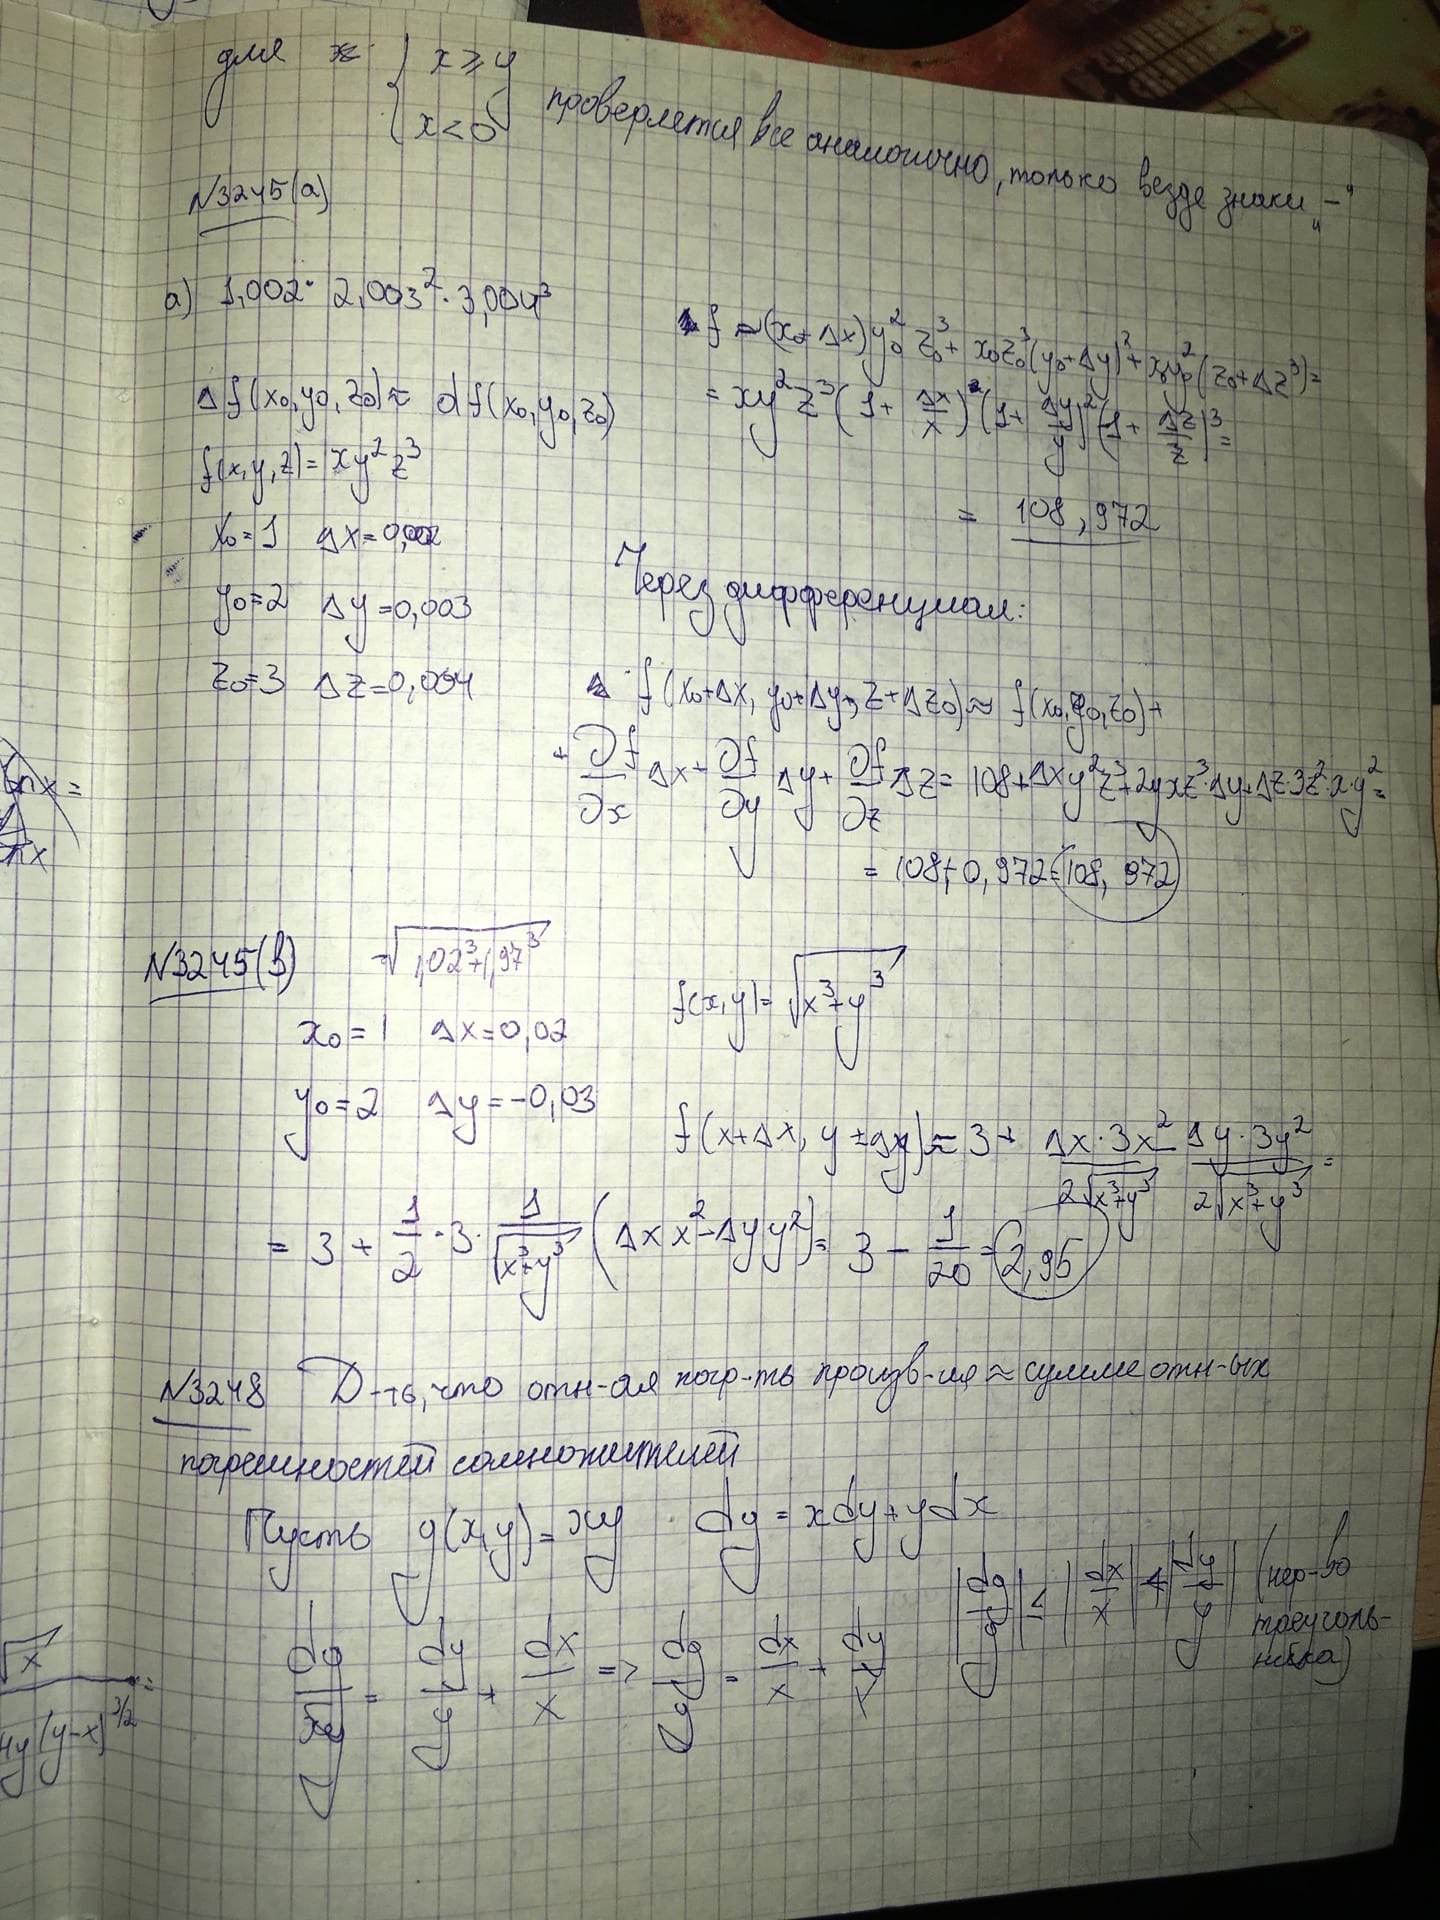 для x { x ≥ y
x < 0 проверяется все аналогично, только везде знаки „-“
N3245(а)
а) 1,002 · 2,003² · 3,004³
Δf(x₀,y₀,z₀) ≈ df(x₀,y₀,z₀)
f(x,y,z) = xy²z³
x₀=1 Δx=0,002
y₀=2 Δy=0,003
z₀=3 Δz=0,004
f ≈ (x₀+Δx)y₀²z₀³ + x₀z₀³(y₀+Δy)² + x₀y₀²(z₀+Δz³) =
= xy²z³(1+Δx/x)(1+Δy/y)²(1+Δz/z)³ =
= 108,972
Через дифференциал:
f(x₀+Δx, y₀+Δy, z+Δz₀) ≈ f(x₀,y₀,z₀) +
+ ∂f/∂x Δx + ∂f/∂y Δy + ∂f/∂z Δz = 108 + Δxy²z³ + 2yxz³·Δy + Δz·3z²·x·y² =
= 108 + 0,972 = 108,972
N3245(в) = √(1,02³+1,97³)
f(x,y) = √(x³+y³)
x₀=1 Δx=0,02
y₀=2 Δy=-0,03
f(x+Δx, y±Δy) ≈ 3 + Δx·3x²/2√(x³+y³) - Δy·3y²/2√(x³+y³) =
= 3 + 1/2 · 3 · 1/√(x³+y³) (Δx x² - Δy y²) = 3 - 1/20 = 2,95
N3248 Д-ть, что отн-ая погр-ть произв-ия ≈ сумме отн-ых
погрешностей сомножителей
Пусть g(x,y) = xy dg = xdy + ydx
dg/xy = dy/y + dx/x => dg/g = dx/x + dy/y |dg/g| ≤ |dx/x| + |dy/y| (нер-во
треуголь-
ника)
√x
4y(y-x)^3/2 =